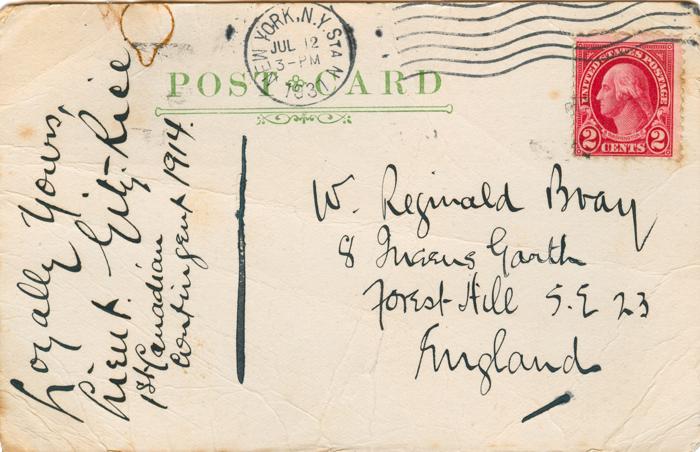 NEW YORK, N.Y. STA. N
JUL 12
3-PM
1931
POST CARD
UNITED STATES POSTAGE
WASHINGTON
2 CENTS 2
W. Reginald Bray
8 Queens Garth
Forest-Hill S.E 23
England
Loyally Yours,
Lieut. Gitz-Rice
1st Canadian
Contingent 1914.